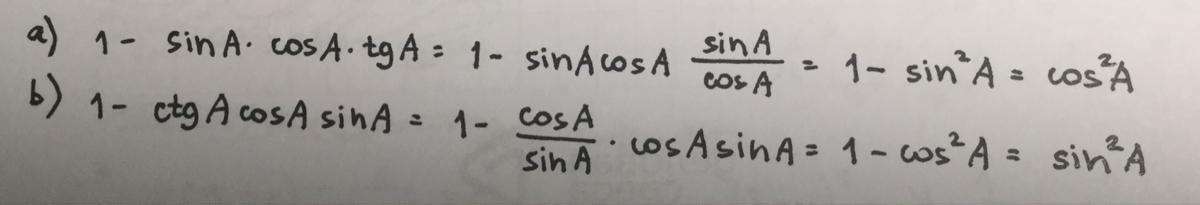 a) 1 - sin A · cos A · tg A = 1 - sin A cos A \frac{sin A}{cos A} = 1 - sin²A = cos²A
b) 1 - ctg A cos A sin A = 1 - \frac{cos A}{sin A} · cos A sin A = 1 - cos²A = sin²A